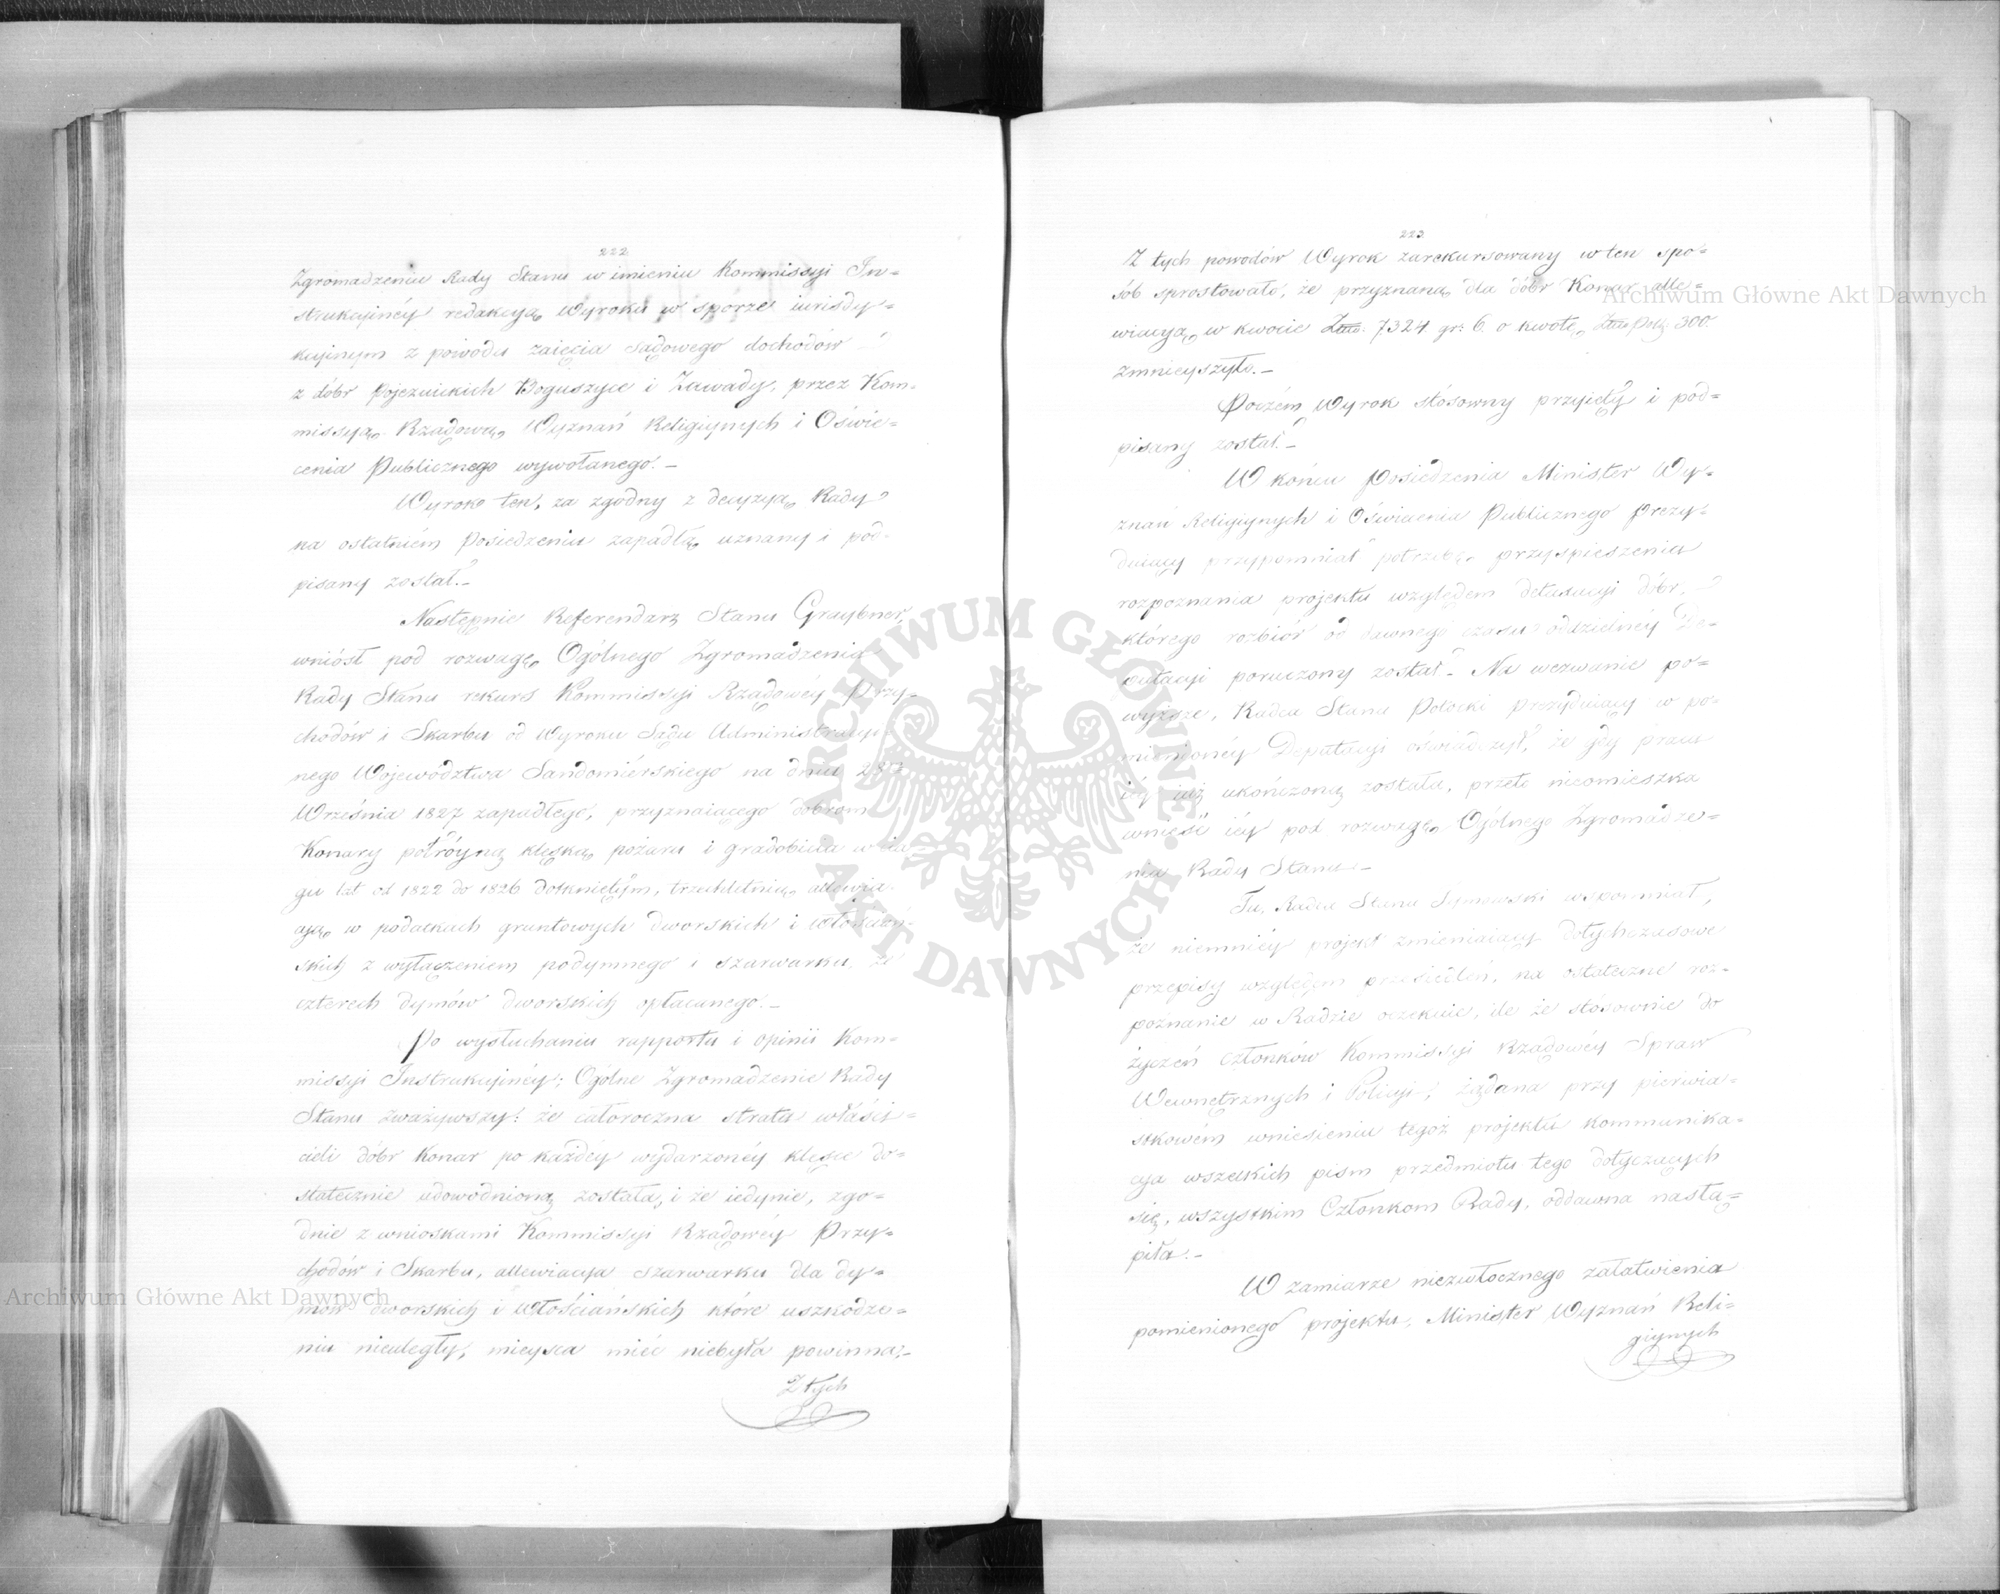 222
Zgromadzeniu Rady Stanu w imieniu Kommissyi In=
strukcyinéy redakcyą Wyroku w sporze iurisdy=
kcyinym z powodu zaięcia sądowego dochodów
z dóbr Pojezuickich Boguszyce i Zawady, przez Kom=
missyą Rządową Wyznań Religiynych i Oświe=
cenia Publicznego wywołanego. –
Wyrok ten, za zgodny z decyzyą Rady
na ostatniém Posiedzeniu zapadłą uznany i pod=
pisany został. –
Następnie Referendarz Stanu Graybner,
wniósł pod rozwagę Ogólnego Zgromadzenia
Rady Stanu rekurs Kommissyi Rządowéy Przy=
chodów i Skarbu od Wyroku Sądu Administracyi=
nego Województwa Sandomiérskiego na dniu
Września 1827 zapadłego, przyznaiącego dobrom
Konary potróyną klęską pożaru i gradobicia w cią=
gu lat od 1822 do 1826 dotkniętym, trzechletnią allewia=
cyą w podatkach gruntowych dworskich i włościań=
skich z wyłączeniem podymnego i szarwarku, ze
czterech dymów dworskich opłacanego. –
Po wysłuchaniu rapportu i opinii Kom=
missyi Instrukcyinéy; Ogólne Zgromadzenie Rady
Stanu zważywszy: że całoroczna strata właści=
cieli dóbr Konar po każdéy wydarzonéy klęsce do=
statecznie udowodnioną została, i że iedynie, zgo=
dnie z wnioskami Kommissyi Rządowéy Przy=
chodów i Skarbu, allewiacyia szarwarku dla dy=
mów dworskich i włościańskich które uszkodze=
niu nieuległy, mieysca mieć niebyła powinna; –
Z tych
223
Z tych powodów Wyrok zarekursowany w ten spo=
sób sprostowało, że przyznaną dla dóbr Konar alle=
wiacyą w kwocie Złto: 7324 gr: 6 o kwotę Złto Pol: 300.
zmnieyszyło. –
Poczém Wyrok stósowny przyięty i pod=
pisany został. –
W końcu Posiedzenia Minister Wy=
znań Religiynych i Oświecenia Publicznego Prezy=
duiący przypomniał potrzebę przyspieszenia
rozpoznania projektu względem detaxacyi dóbr,
którego rozbiór od dawnego czasu oddzielnéy De=
putacyi poruczony został. – Na wezwanie po=
wyższe, Radca Stanu Potocki prezyduiący w po=
mienionéy Deputacyi oświadczył, że gdy praca
iéy iuż ukończoną została, przeto nieomieszka
wnieść iéy pod rozwagę Ogólnego Zgromadze=
nia Rady Stanu –
Tu, Radca Stanu Lymowski wspomniał,
że niemniéy projekt zmieniaiący dotychczasowe
przepisy względem przesiedleń, na ostateczne roz=
poznanie w Radzie oczekuie, ile że stósownie do
życzeń członków Kommissyi Rządowéy Spraw
Wewnętrznych i Policyi, żądana przy pierwia=
stkowém wniesieniu tegoż projektu kommunika=
cya wszelkich pism przedmiotu tego dotyczących
się, wszystkim Członkom Rady, oddawna nastą=
piła. –
W zamiarze niezwłocznego załatwienia
pomienionego projektu, Minister Wyznań Reli=
giynych
Archiwum Główne Akt Dawnych
Archiwum Główne Akt Dawnych
ARCHIWUM GŁÓWNE AKT DAWNYCH